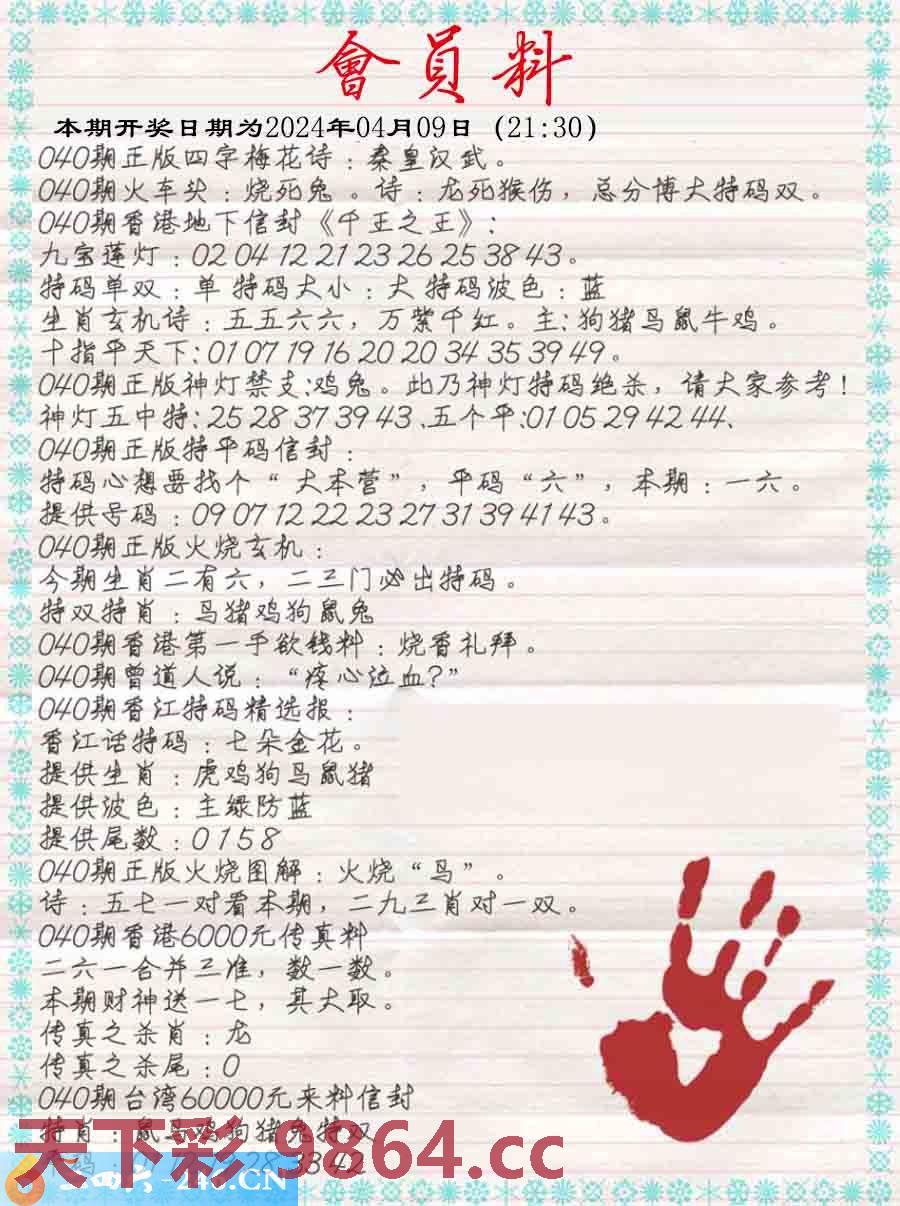 會員料
本期开奖日期为2024年04月09日（21:30）
040期正版四字梅花诗：秦皇汉武。
040期火车头：烧死兔 。诗：龙死猴伤，总分博大特码双。
040期香港地下信封《千王之王》：
九宝莲灯：02 04 12 21 23 26 25 38 43。
特码单双：单 特码大小：大 特码波色：蓝
生肖玄机诗：五五六六，万紫千红。主：狗猪马鼠牛鸡。
十指平天下：01 07 19 16 20 20 34 35 39 49。
040期正版神灯禁支：鸡兔。此乃神灯特码绝杀，请大家参考！
神灯五中特：25 28 37 39 43 、五个平：01 05 29 42 44、
040期正版特平码信封：
特码心想要找个“ 大本营”，平码“六”，本期：一六。
提供号码：09 07 12 22 23 27 31 39 41 43。
040期正版火烧玄机：
今期生肖二有六，二三门必出特码。
特双特肖：马猪鸡狗鼠兔
040期香港第一手欲钱料：烧香礼拜。
040期曾道人说：“疼心泣血?”
040期香江特码精选报：
香江话特码：七朵金花。
提供生肖：虎鸡狗马鼠猪
提供波色：主绿防蓝
提供尾数：0 1 5 8
040期正版火烧图解：火烧“马”。
诗：五七一对看本期，二九三肖对一双。
040期香港6000元传真料
二六一合并三准，数一数。
本期财神送一七，其大取。
传真之杀肖：龙
传真之杀尾：0
040期台湾60000元来料信封
特肖：鼠马鸡狗猪兔特双
28 33 42
天下彩 9864.cc
246.CN